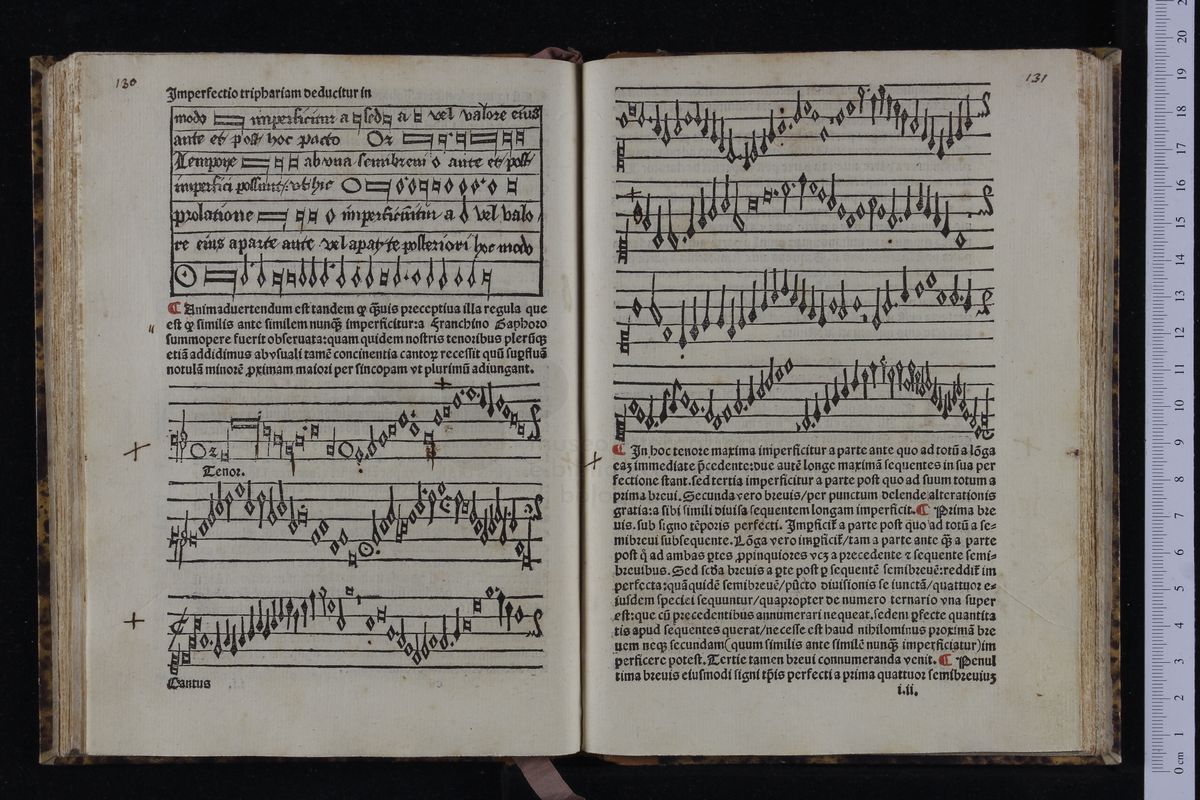 130
Imperfectio triphariam deducitur in
modo imperficitur a sed a vel valore eius
ante et post hoc pacto O2
Tempore ab vna semibreui ante et post
imperfici possunt/ vt hic
prolatione a vel valo
re eius a parte ante vel a parte posteriori hoc modo
¶ Animaduertendum est tandem ꝙ q̄uis preceptiua illa regula que
est ꝙ similis ante similem nunq̄ imperficitur: a Franchino Gaphoro
summopere fuerit obseruata: quam quidem nostris tenoribus plerūqꝫ
etiā addidimus ab vsuali tamē concinentia cantoꝝ recessit quū suꝑfluā
notulā minorē ꝓximam maiori per sincopam vt plurimū adiungant.
Tenor.
Cantus
131
¶ In hoc tenore maxima imperficitur a parte ante quo ad totū a lōga
eaꝫ immediate p̄cedente: due autē longe maximā sequentes in sua per
fectione stant. sed tertia imperficitur a parte post quo ad suum totum a
prima breui. Secunda vero breuis/ per punctum delende alterationis
gratia: a sibi simili diuisa sequentem longam imperficit. ¶ Prima bre
uis. sub signo tēporis perfecti. a parte post quo ad totū a se-
mibreui subsequente. Lōga vero /tam a parte ante q̄ a parte
post q̄ ad ambas ꝑtes ꝓpinquiores vcꝫ a precedente ⁊ sequente semi-
breuibus. Sed scd̄a breuis a ꝑte post ꝑ sequentē semibreuē: im
perfecta: quāquidē semibreuē/ pūcto diuisionis se iunctā/ quattuor e-
iusdem speciei sequuntur/ quapropter de numero ternario vna super
est: que cū precedentibus annumerari nequeat. sedem ꝑfecte quantita
tis apud sequentes querat/ necesse est haud nihilominus proximā bre
uem neqꝫ secundam (quum similis ante similē nunq̄ imperficiatur) im
perficere potest. Tertie tamen breui connumeranda venit. ¶ Penul
tima breuis eiusmodi signi tp̄is perfecti a prima quattuor semibreuiuꝫ
i.ii.
0 cm 1 2 3 4 5 6 7 8 9 10 11 12 13 14 15 16 17 18 19 20